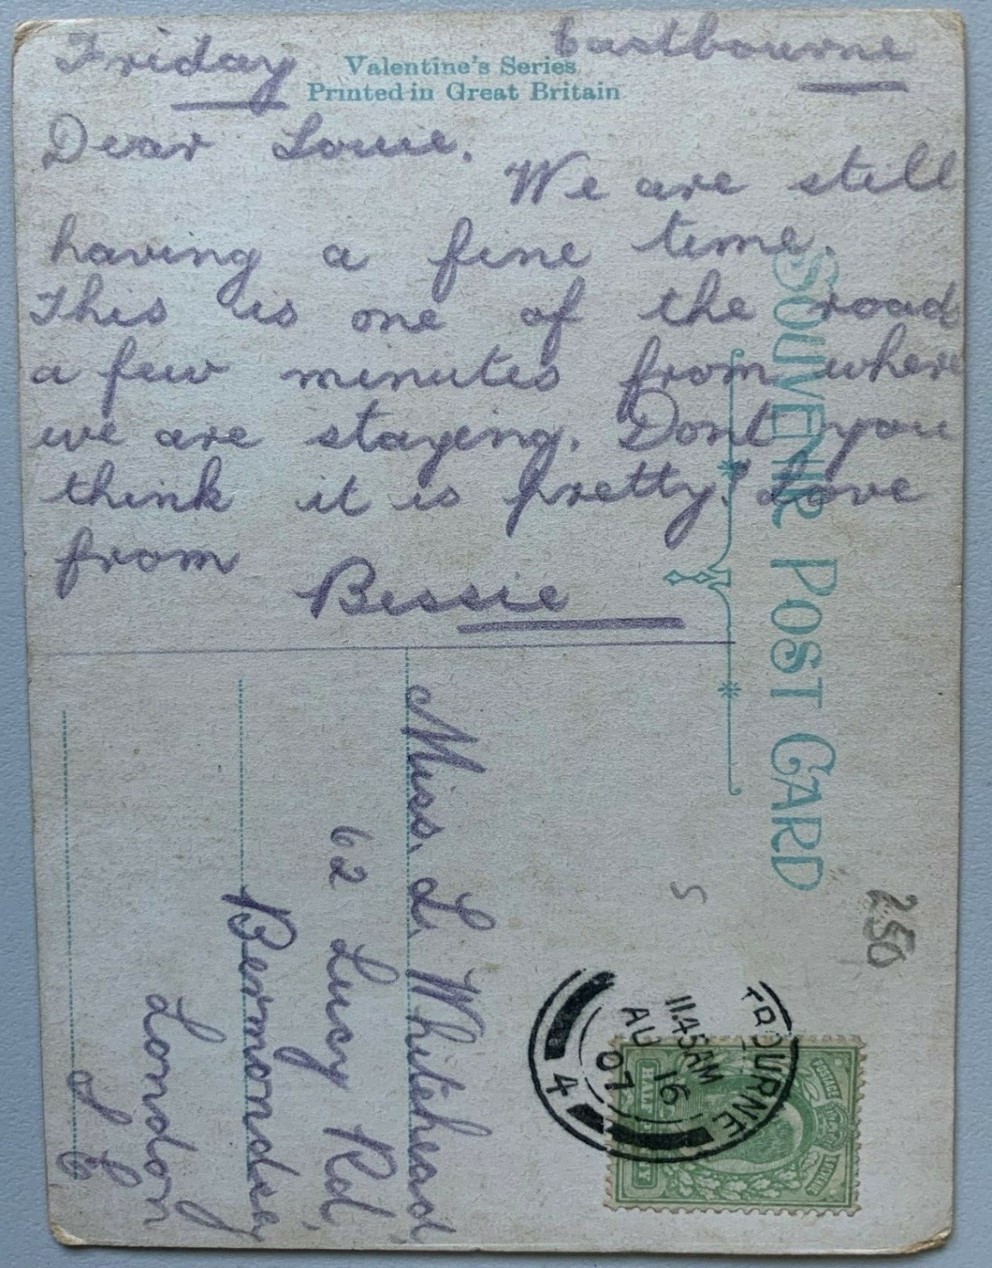 Friday
Eastbourne
Valentine's Series
Printed in Great Britain
Dear Louie.
We are still
having a fine time.
This is one of the road
a few minutes from where
we are staying. Dont you
think it is pretty? Love
from
Bessie
SOUVENIR POST CARD
Miss. L. Whitehead
62 Lucy Rd,
Bermondsey
London
S E
S
250
TBOURNE
11.45 AM
AU 16
07
4
POSTAGE